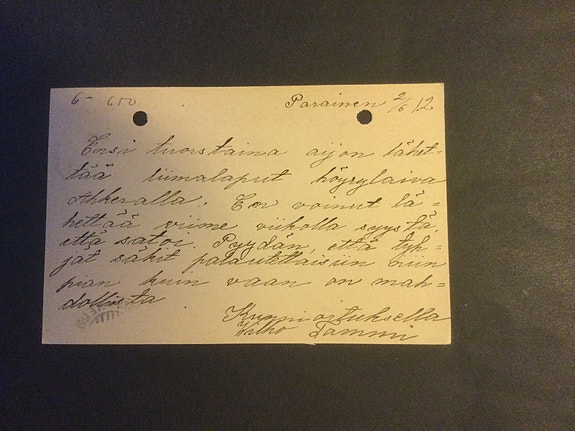 6- 650
Parainen 2/6 12
Ensi tuorstaina aijon lähet-
tää liimalaput höyrylaiva
Ahkeralla. En voinut lä-
hettää viime viikolla syystä,
että satoi. Pyydän, että tyh-
jät säkit palautettaisiin niin
pian kuin vaan on mah-
dollista
Kunnioituksella
Wilho Tammi